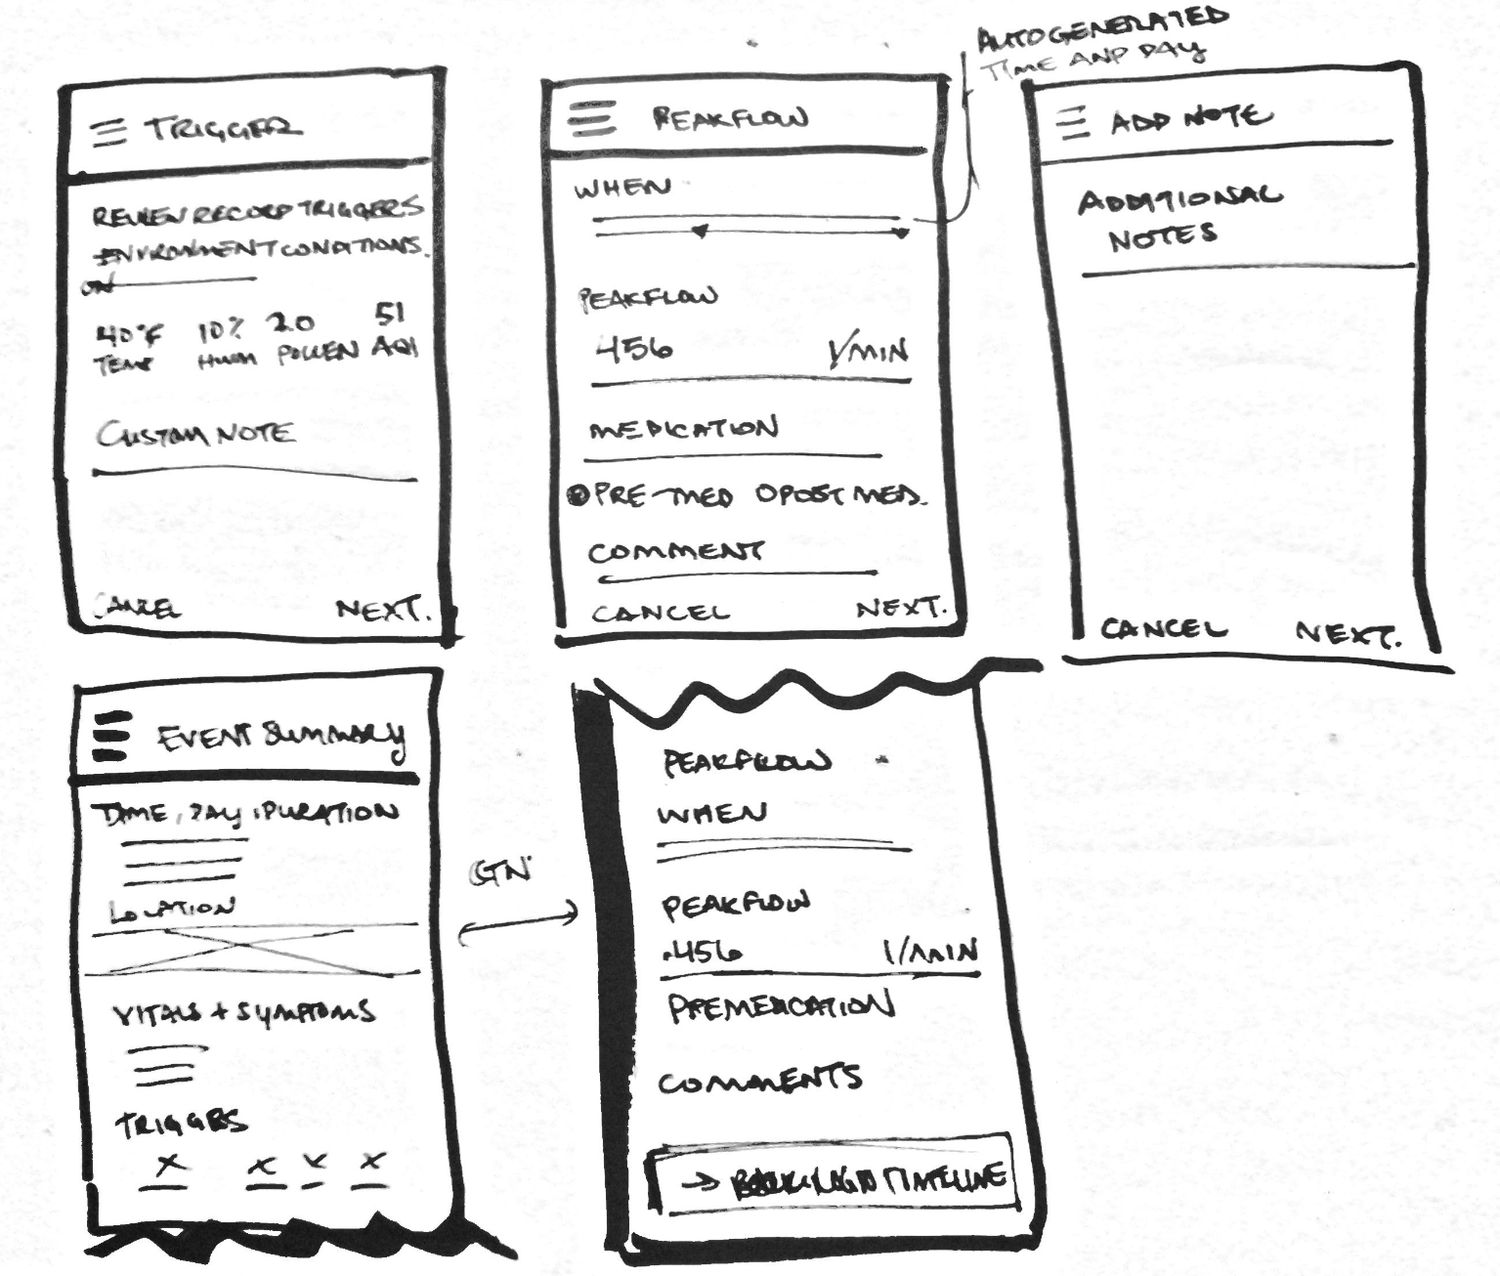 AUTOGENERATED
TIME AND DAY
TRIGGER
REVIEW RECORD TRIGGERS
ENVIRONMENT CONDITIONS.
ON
40°F 10% 20 51
TEMP HUM POLLEN AQI
CUSTOM NOTE
CANCEL NEXT.
PEAKFLOW
WHEN
PEAKFLOW
456 l/MIN
MEDICATION
PRE-MED POST MED.
COMMENT
CANCEL NEXT.
ADD NOTE
ADDITIONAL
NOTES
CANCEL NEXT.
EVENT SUMMARY
TIME, DAY, DURATION
LOCATION
VITALS + SYMPTOMS
TRIGGERS
X X X X
PEAKFLOW
WHEN
PEAKFLOW
456 l/MIN
PREMEDICATION
COMMENTS
→ TIMELINE